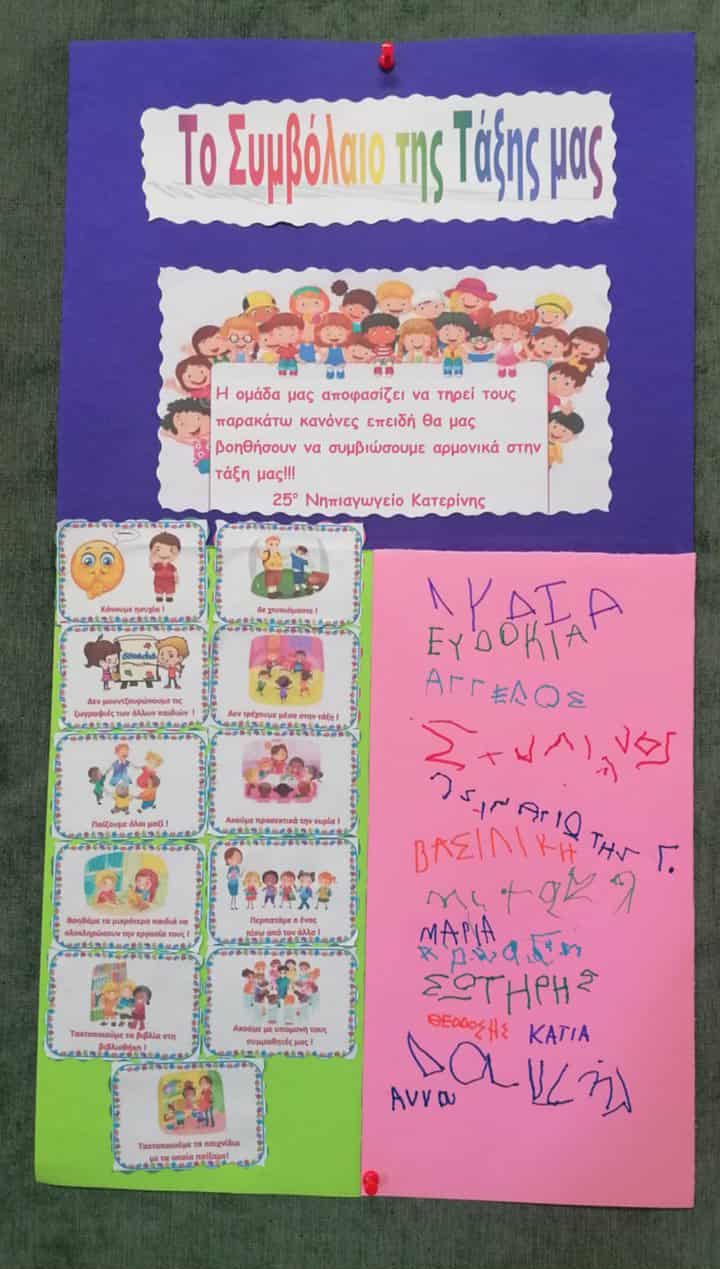 Το Συμβόλαιο της Τάξης μας
Η ομάδα μας αποφασίζει να τηρεί τους
παρακάτω κανόνες επειδή θα μας
βοηθήσουν να συμβιώσουμε αρμονικά στην
τάξη μας!!!
25° Νηπιαγωγείο Κατερίνης
Κάνουμε ησυχία !
Δε χτυπιόμαστε !
Δεν μουντζουρώνουμε τις
ζωγραφιές των άλλων παιδιών !
Δεν τρέχουμε μέσα στην τάξη !
Παίζουμε όλοι μαζί !
Ακούμε προσεκτικά την κυρία !
Βοηθάμε τα μικρότερα παιδιά να
ολοκληρώσουν την εργασία τους !
Περπατάμε ο ένας
πίσω από τον άλλο !
Τακτοποιούμε τα βιβλία στη
βιβλιοθήκη !
Ακούμε με υπομονή τους
συμμαθητές μας !
Τακτοποιούμε τα παιχνίδια
με τα οποία παίξαμε!
ΛΥΔΙΑ
ΕΥΔΟΚΙΑ
ΑΓΓΕΛΟΣ
ΒΑΣΙΛΙΚΗ
ΜΑΡΙΑ
ΣΩΤΗΡΗΣ
ΘΕΟΔΟΣΗΣ ΚΑΤΙΑ
Αννα